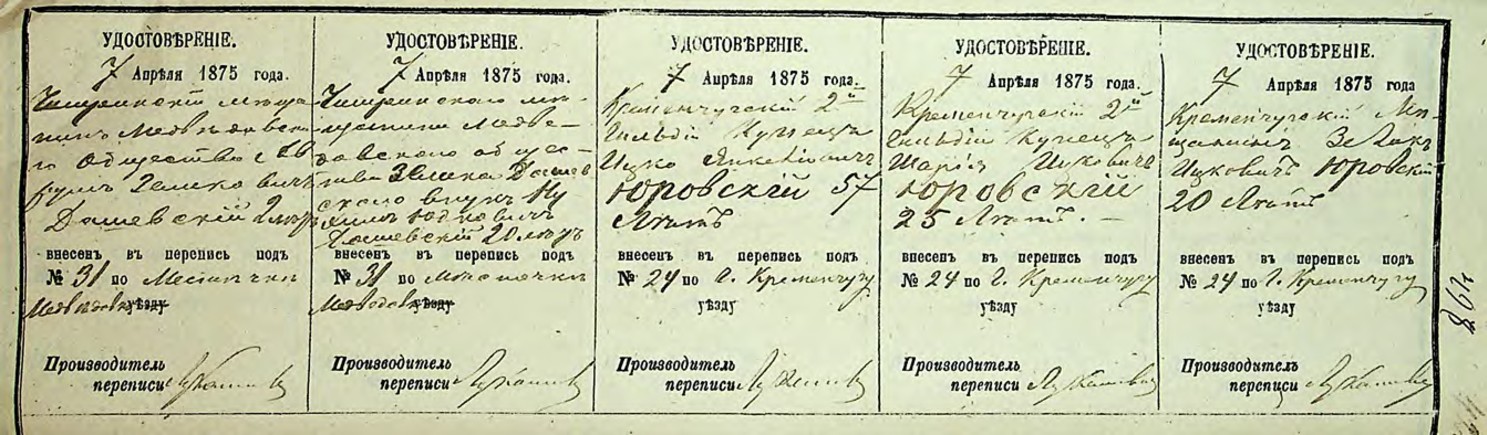 УДОСТОВѢРЕНІЕ.
7 Апрѣля 1875 года.
Чигиринскій мѣща-
нинъ Медвѣдовска-
го Общества
Дашевскій 2 лѣтъ
внесенъ въ перепись подъ
№ 31 по Местечку
Медвѣдовкѣ уѣзду
Производитель
переписи
УДОСТОВѢРЕНІЕ.
7 Апрѣля 1875 года.
Чигиринскаго мѣ-
щанина Медвѣ-
довскаго обще-
ства Зелика Дашев
скаго внукъ Ну
Юдковичъ
Дашевскій 20 лѣтъ
внесенъ въ перепись подъ
№ 31 по местечку
Медвѣдовкѣ уѣзду
Производитель
переписи
УДОСТОВѢРЕНІЕ.
7 Апрѣля 1875 года.
Кременчугскій 2й
Гильдіи Купецъ
Ицко Янкелевичъ
Юровскій 57
Лѣтъ
внесенъ въ перепись подъ
№ 24 по г. Кременчугу
уѣзду
Производитель
переписи
УДОСТОВѢРЕНІЕ.
7 Апрѣля 1875 года.
Кременчугскій 2й
Гильдіи Купецъ
Ицковичъ
Юровскій
25 Лѣтъ. —
внесенъ въ перепись подъ
№ 24 по г. Кременчугу
уѣзду
Производитель
переписи
УДОСТОВѢРЕНІЕ.
7 Апрѣля 1875 года
Кременчугскій Мѣ-
щанинъ Зеликъ
Ицковичъ Юровскій
20 Лѣтъ
внесенъ въ перепись подъ
№ 24 по г. Кременчугу
уѣзду
Производитель
переписи